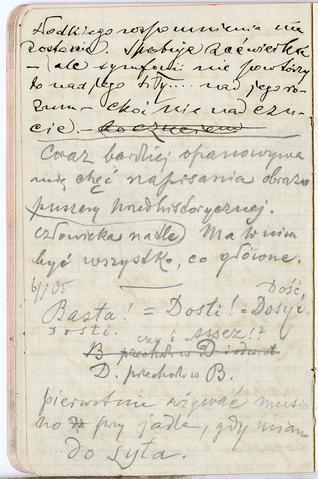 słodkiego wspomnienia nie
zostanie. Spróbuje zaćwierkać
– ale symfonii nie powtórzy
to nad jego siły.... nad jego ro-
zum – choć nie nad czu-
cie. –
Coraz bardziej opanowywa
mię chęć napisania obrazu
puszczy przedhistorycznej.
człowieka nadle Ma w nim
być wszystko, co główne.
6/I 05
Dość,
Basta! = Dosti! = Dosyć.
Dosti. czy i Assez!?
B przechodzi w D i odwrot
D. przechodzi w B.
pierwotnie używać musia
no przy jadle, gdy mian
do syta.